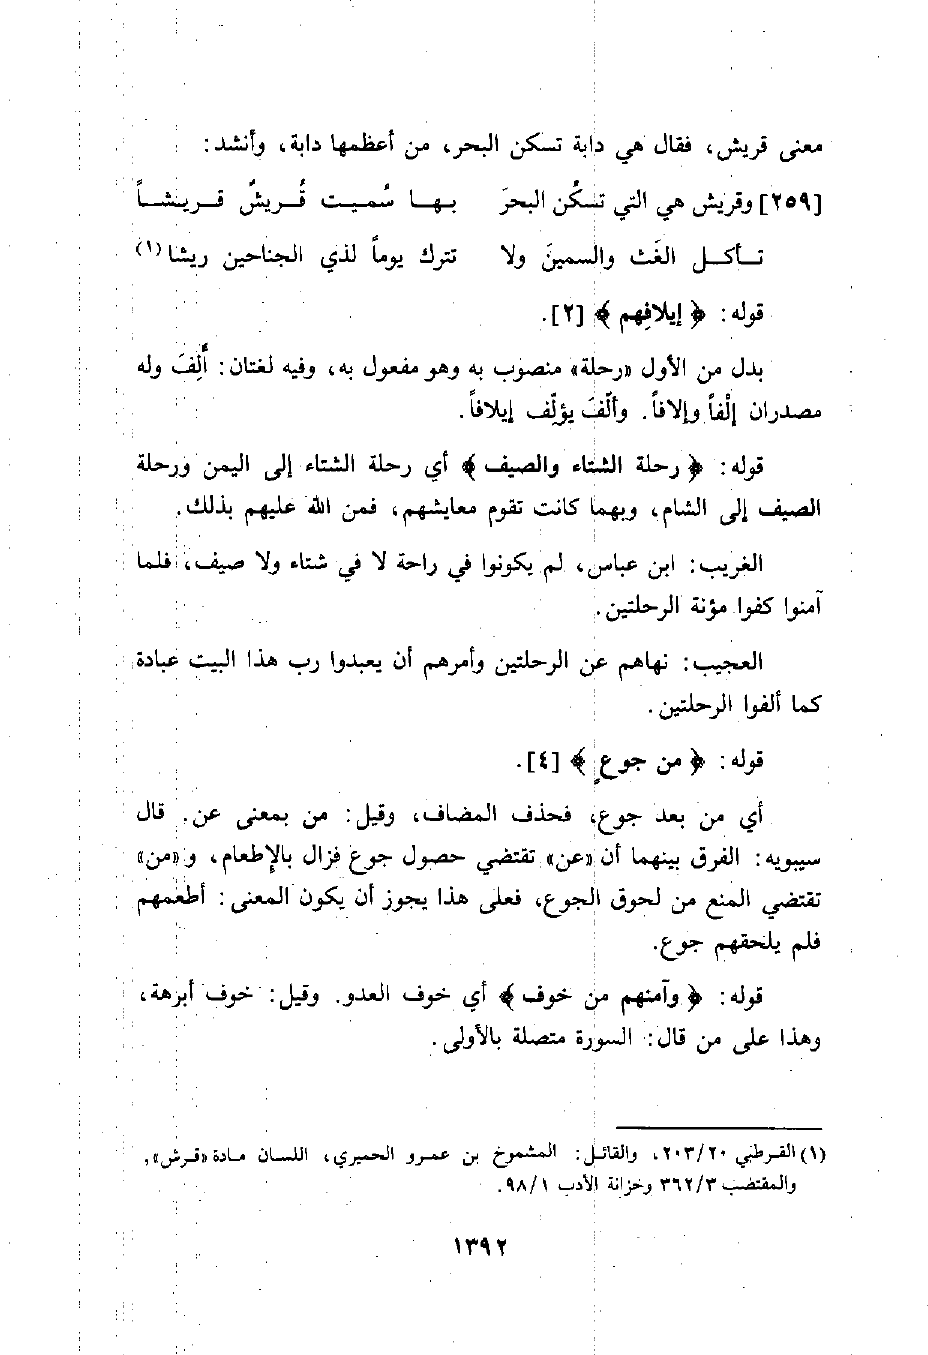 معنى قريش، فقال هي دابة تسكن البحر، من أعظمها دابة، وأنشد:
[٢٥٩] وقريش هي التي تسكُن البحرَ بهـا سُميـت قُـريشُ قـريشـاً
تـأكـل الغَث والسمينَ ولا تترك يوماً لذي الجناحين ريشا(١)
قوله: ﴿ إيلافِهم ﴾ [٢].
بدل من الأول «رحلة» منصوب به وهو مفعول به، وفيه لغتان: أَلِفَ وله
مصدران إلْفاً وإلافاً. وألّفَ يؤلّف إيلافاً.
قوله: ﴿ رحلة الشتاء والصيف ﴾ أي رحلة الشتاء إلى اليمن ورحلة
الصيف إلى الشام، وبهما كانت تقوم معايشهم، فمن الله عليهم بذلك.
الغريب: ابن عباس، لم يكونوا في راحة لا في شتاء ولا صيف، فلما
آمنوا كفوا مؤنة الرحلتين.
العجيب: نهاهم عن الرحلتين وأمرهم أن يعبدوا رب هذا البيت عبادة
كما ألفوا الرحلتين.
قوله: ﴿ من جوعٍ ﴾ [٤].
أي من بعد جوع، فحذف المضاف، وقيل: من بمعنى عن. قال
سيبويه: الفرق بينهما أن «عن» تقتضي حصول جوع فزال بالإطعام، و«من»
تقتضي المنع من لحوق الجوع، فعلى هذا يجوز أن يكون المعنى: أطعمهم
فلم يلحقهم جوع.
قوله: ﴿ وآمنهم من خوف ﴾ أي خوف العدو. وقيل: خوف أبرهة،
وهذا على من قال: السورة متصلة بالأولى.
(١) القرطبي ٢٠٣/٢٠، والقائـل: المشموخ بن عمرو الحميري، اللسان مـادة «قـرش»،
والمقتضب ٣٦٢/٣ وخزانة الأدب ٩٨/١.
١٣٩٢